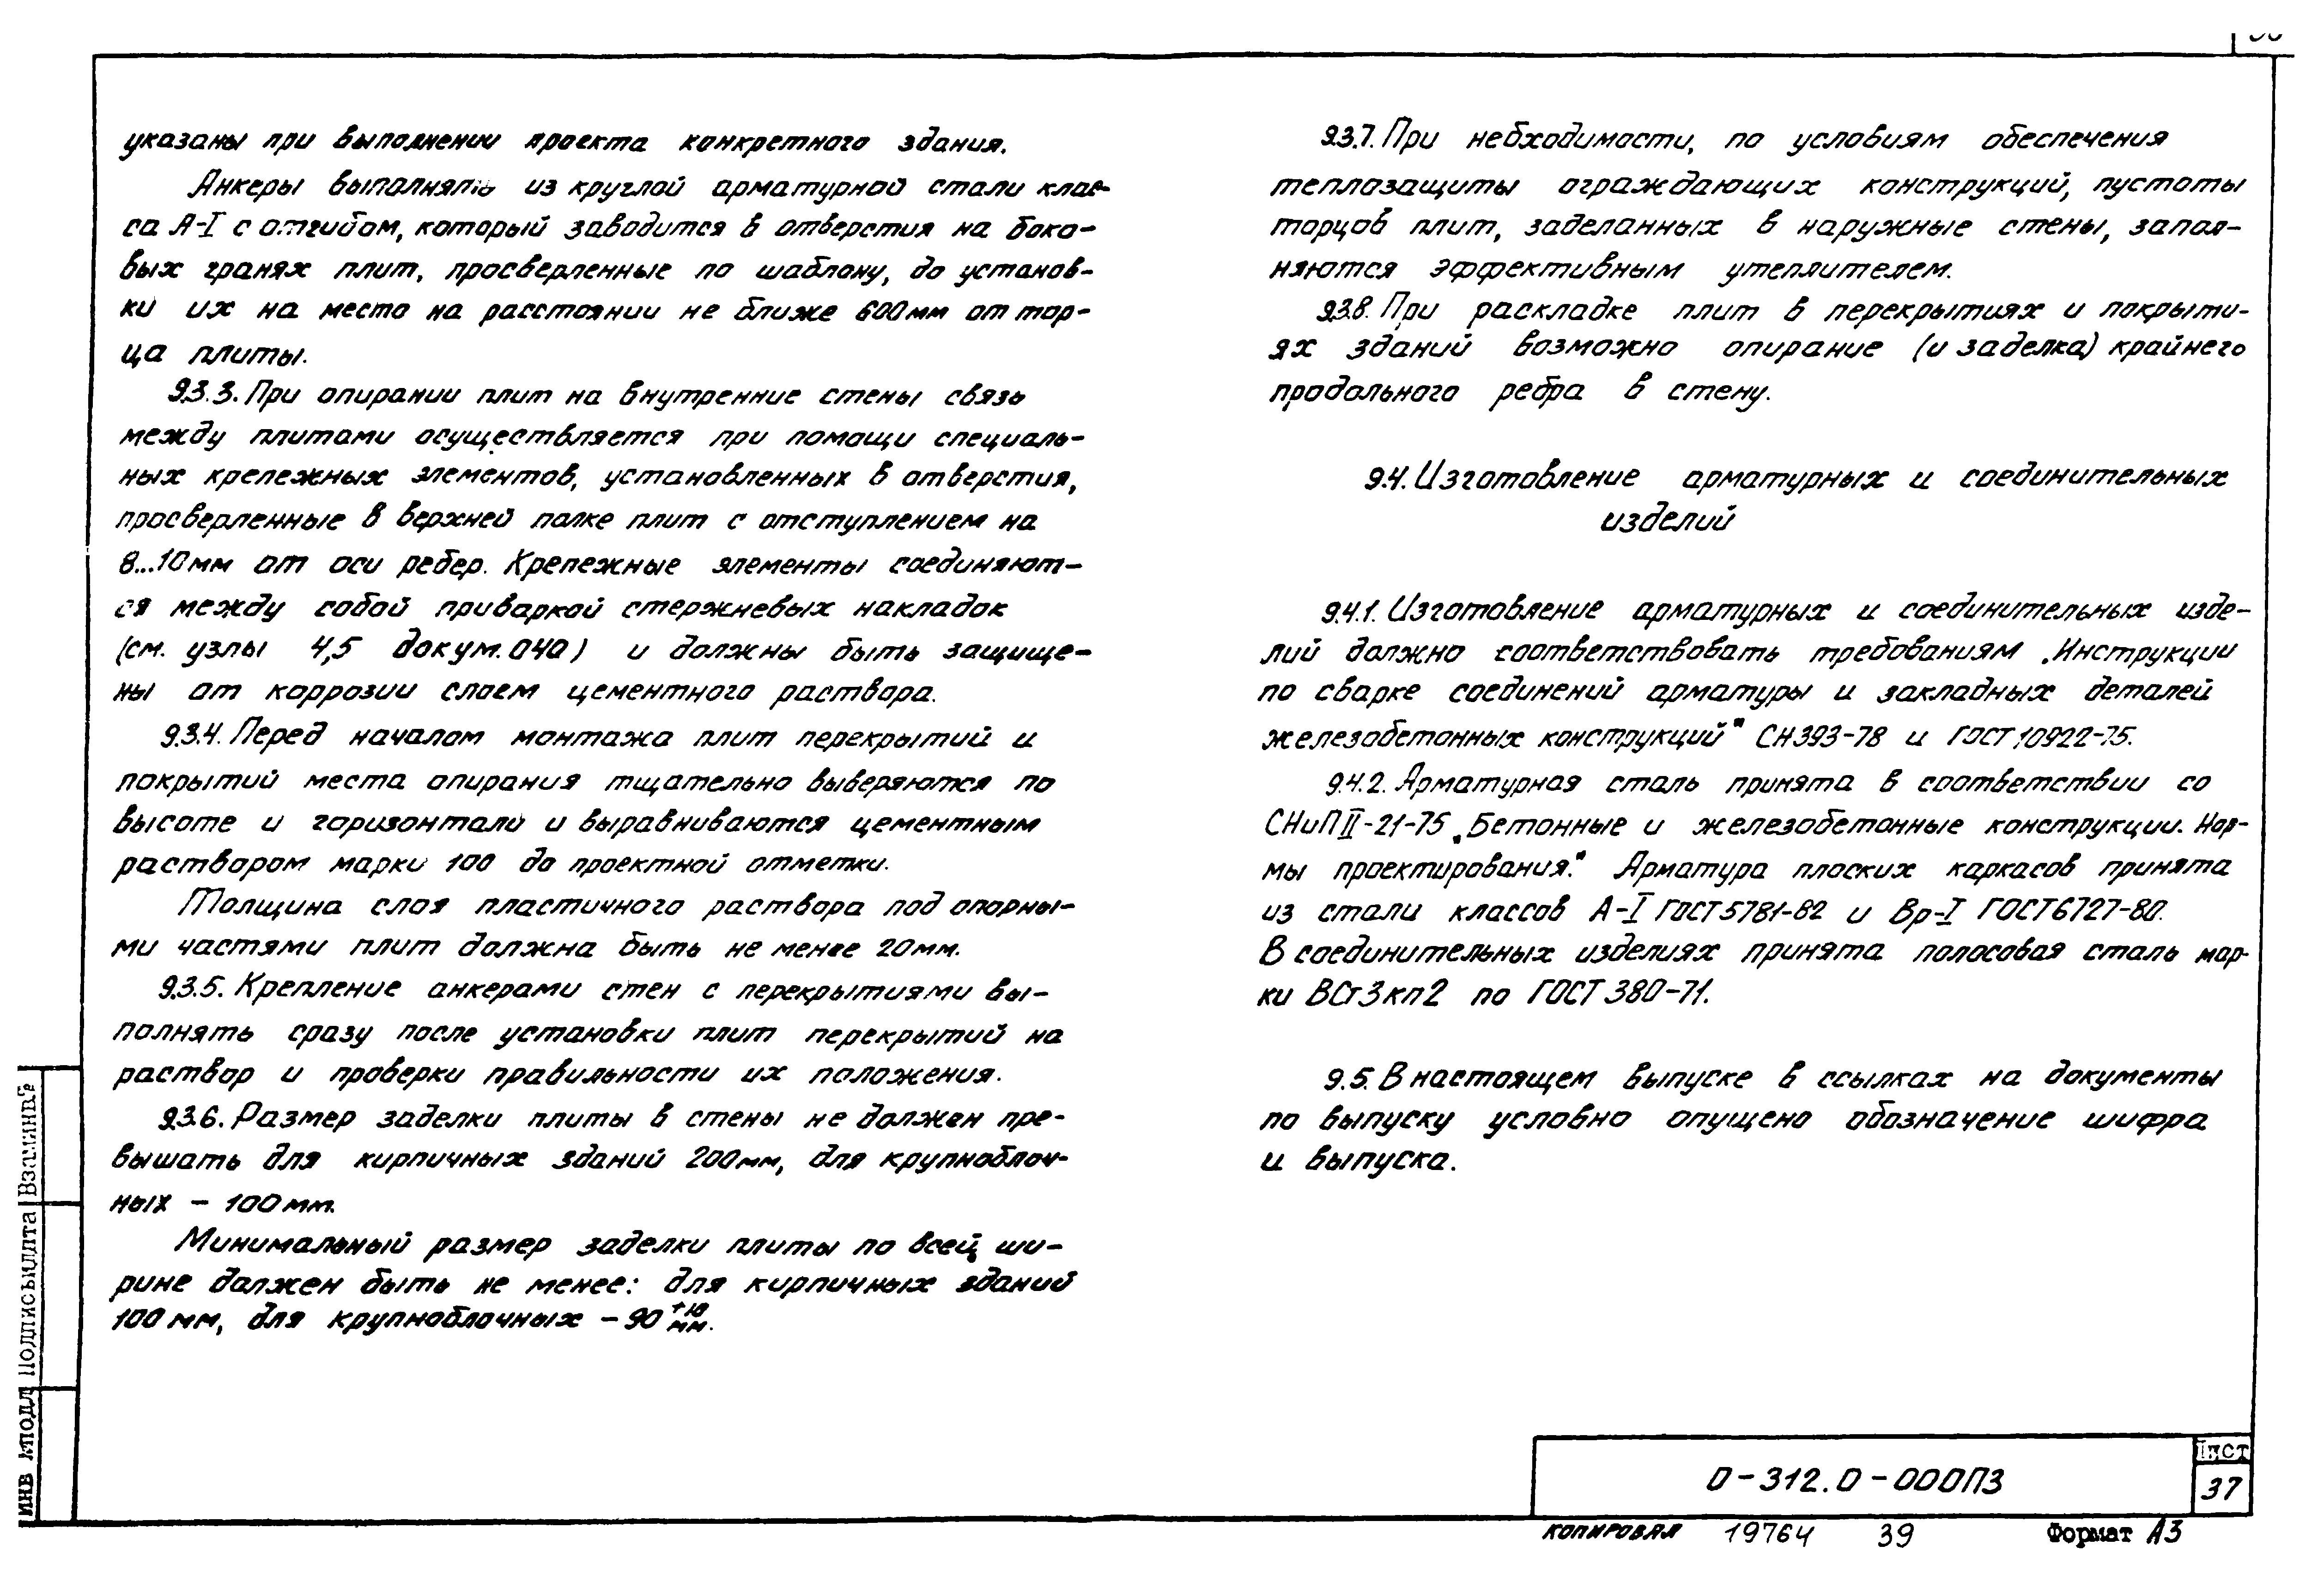 указаны при выполнении проекта конкретного здания.
Анкеры выполнять из круглой арматурной стали клас-
са А-I с отгибом, который заводится в отверстия на боко-
вых гранях плит, просверленные по шаблону, до установ-
ки их на место на расстоянии не ближе 600мм от тор-
ца плиты.
9.3.3. При опирании плит на внутренние стены связь
между плитами осуществляется при помощи специаль-
ных крепежных элементов, установленных в отверстия,
просверленные в верхней полке плит с отступлением на
8...10мм от оси ребер. Крепежные элементы соединяют-
ся между собой приваркой стержневых накладок
(см. узлы 4,5 докум. 040) и должны быть защище-
ны от коррозии слоем цементного раствора.
9.3.4. Перед началом монтажа плит перекрытий и
покрытий места опирания тщательно выверяются по
высоте и горизонтали и выравниваются цементным
раствором марки 100 до проектной отметки.
Толщина слоя пластичного раствора под опорны-
ми частями плит должна быть не менее 20мм.
9.3.5. Крепление анкерами стен с перекрытиями вы-
полнять сразу после установки плит перекрытий на
раствор и проверки правильности их положения.
9.3.6. Размер заделки плиты в стены не должен пре-
вышать для кирпичных зданий 200мм, для крупноблоч-
ных - 100мм.
Минимальный размер заделки плиты по всей ши-
рине должен быть не менее: для кирпичных зданий
100мм, для крупноблочных - 90 +10 мм.
9.3.7. При небходимости, по условиям обеспечения
теплозащиты ограждающих конструкций, пустоты
торцов плит, заделанных в наружные стены, запол-
няются эффективным утеплителем.
9.3.8. При раскладке плит в перекрытиях и покрыти-
ях зданий возможно опирание (и заделка) крайнего
продольного ребра в стену.
9.4. Изготовление арматурных и соединительных
изделий
9.4.1. Изготовление арматурных и соединительных изде-
лий должно соответствовать требованиям „Инструкции
по сварке соединений арматуры и закладных деталей
железобетонных конструкций" СН393-78 и ГОСТ 10922-75.
9.4.2. Арматурная сталь принята в соответствии со
СНиП II-21-75 „Бетонные и железобетонные конструкции. Нор-
мы проектирования". Арматура плоских каркасов принята
из стали классов А-I ГОСТ 5781-82 и Вр-I ГОСТ 6727-80.
В соединительных изделиях принята полосовая сталь мар-
ки ВСт3кп2 по ГОСТ 380-71.
9.5. В настоящем выпуске в ссылках на документы
по выпуску условно опущено обозначение шифра
и выпуска.
ИНВ №ПОДЛ Подпись и дата Взам.инв№
0-312.0-000ПЗ
Лист
37
Копировал 19764 39 Формат А3